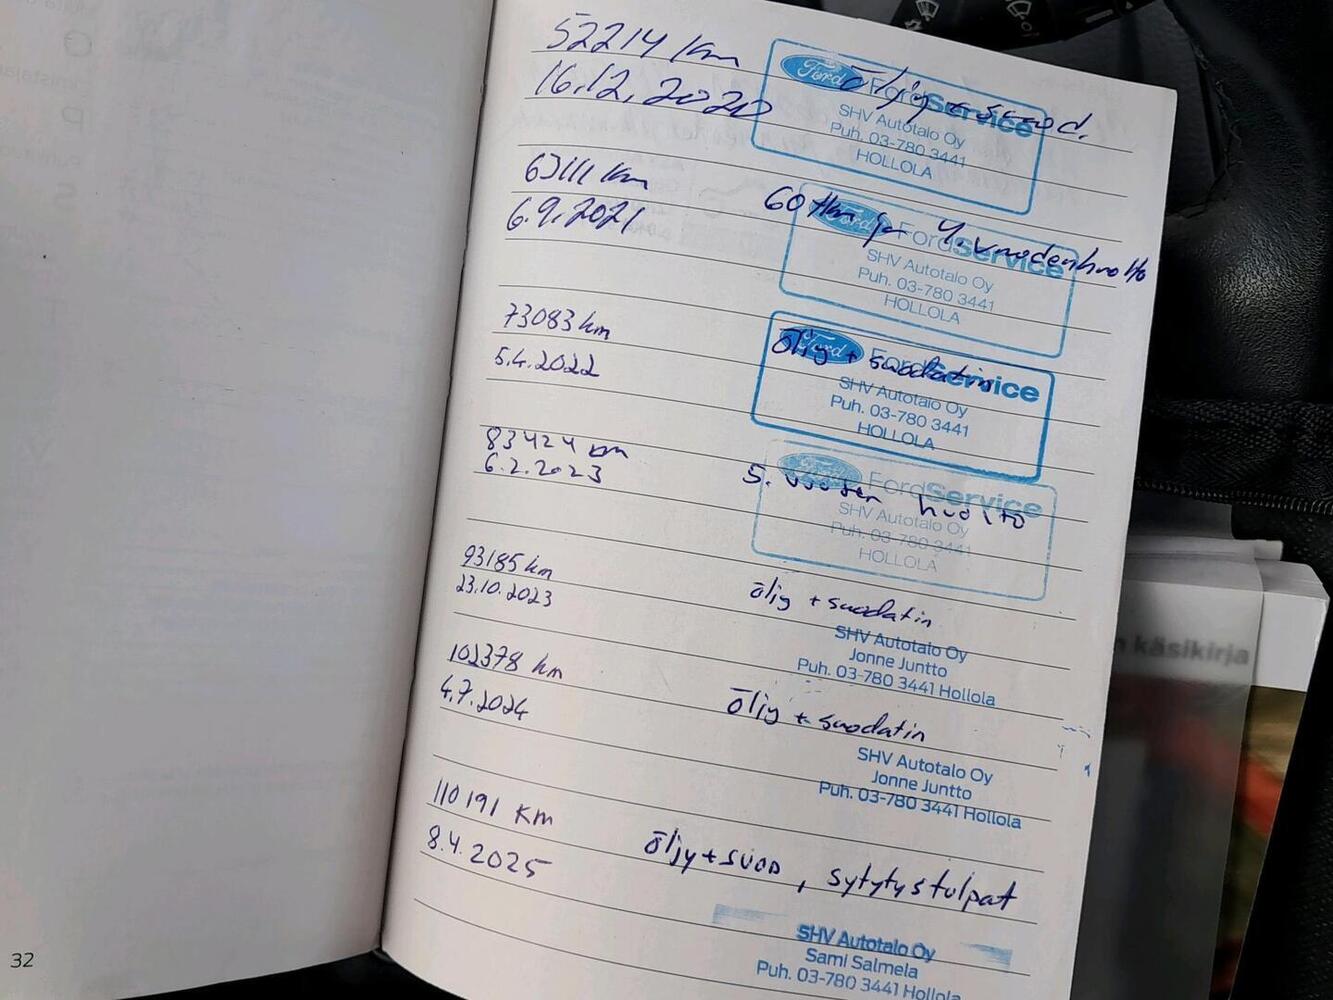 52214 km
16.12.2020
öljy + suod.
Ford FordService
SHV Autotalo Oy
Puh. 03-780 3441
HOLLOLA
63111 km
6.9.2021
60 tkm ja 4.vuodenhuolto
Ford FordService
SHV Autotalo Oy
Puh. 03-780 3441
HOLLOLA
73083 km
5.4.2022
öljy + suodatin
Ford FordService
SHV Autotalo Oy
Puh. 03-780 3441
HOLLOLA
83424 km
6.2.2023
5. vuoden huolto
Ford FordService
SHV Autotalo Oy
Puh. 03-780 3441
HOLLOLA
93185 km
23.10.2023
öljy + suodatin
SHV Autotalo Oy
Jonne Juntto
Puh. 03-780 3441 Hollola
102378 km
4.7.2024
öljy + suodatin
SHV Autotalo Oy
Jonne Juntto
Puh. 03-780 3441 Hollola
110191 km
8.4.2025
öljy+suod, sytytystulpat
SHV Autotalo Oy
Sami Salmela
Puh. 03-780 3441 Hollola
32
käsikirja